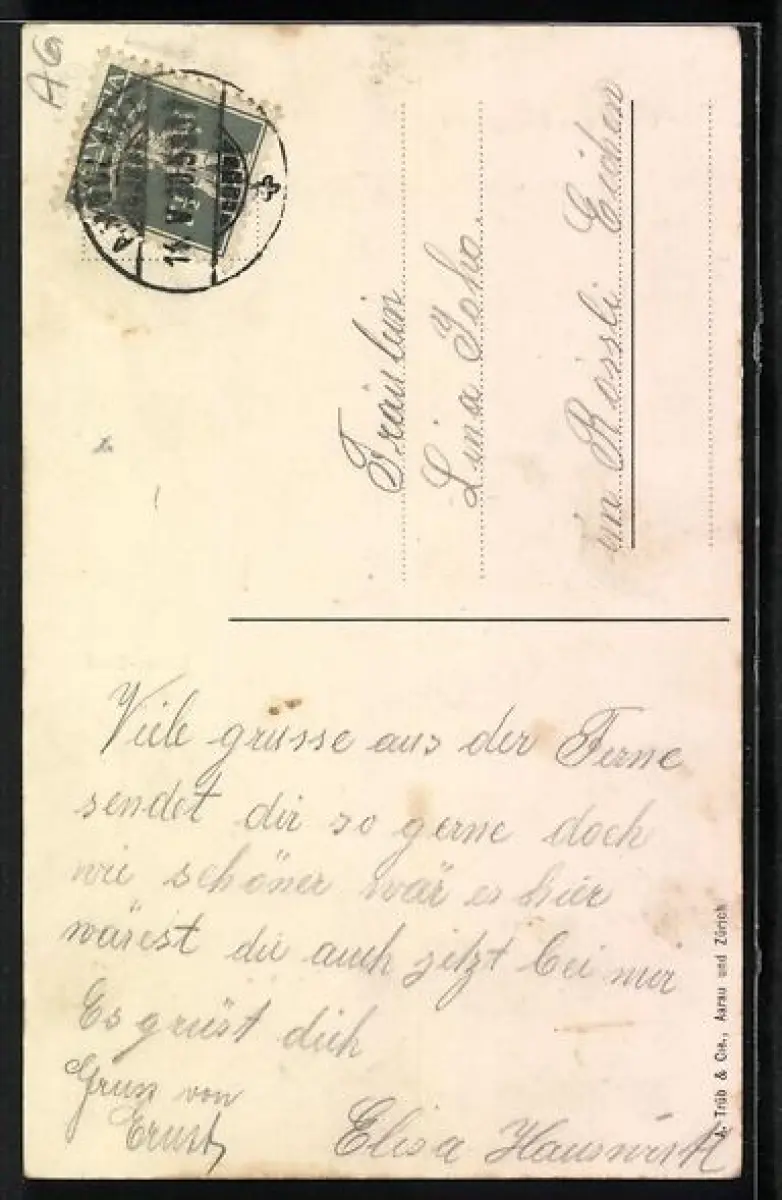 AG
HELVETIA
Fräulein
Lina Joho
im Rössli Eichen
Viele grüsse aus der Ferne
sendet dir so gerne doch
wie schöner wär es hier
wärest du auch jetzt bei mir
Es grüst dich
Gruss von
Ernst
Elisa Hauswirth
A. Trüb & Cie., Aarau und Zürich